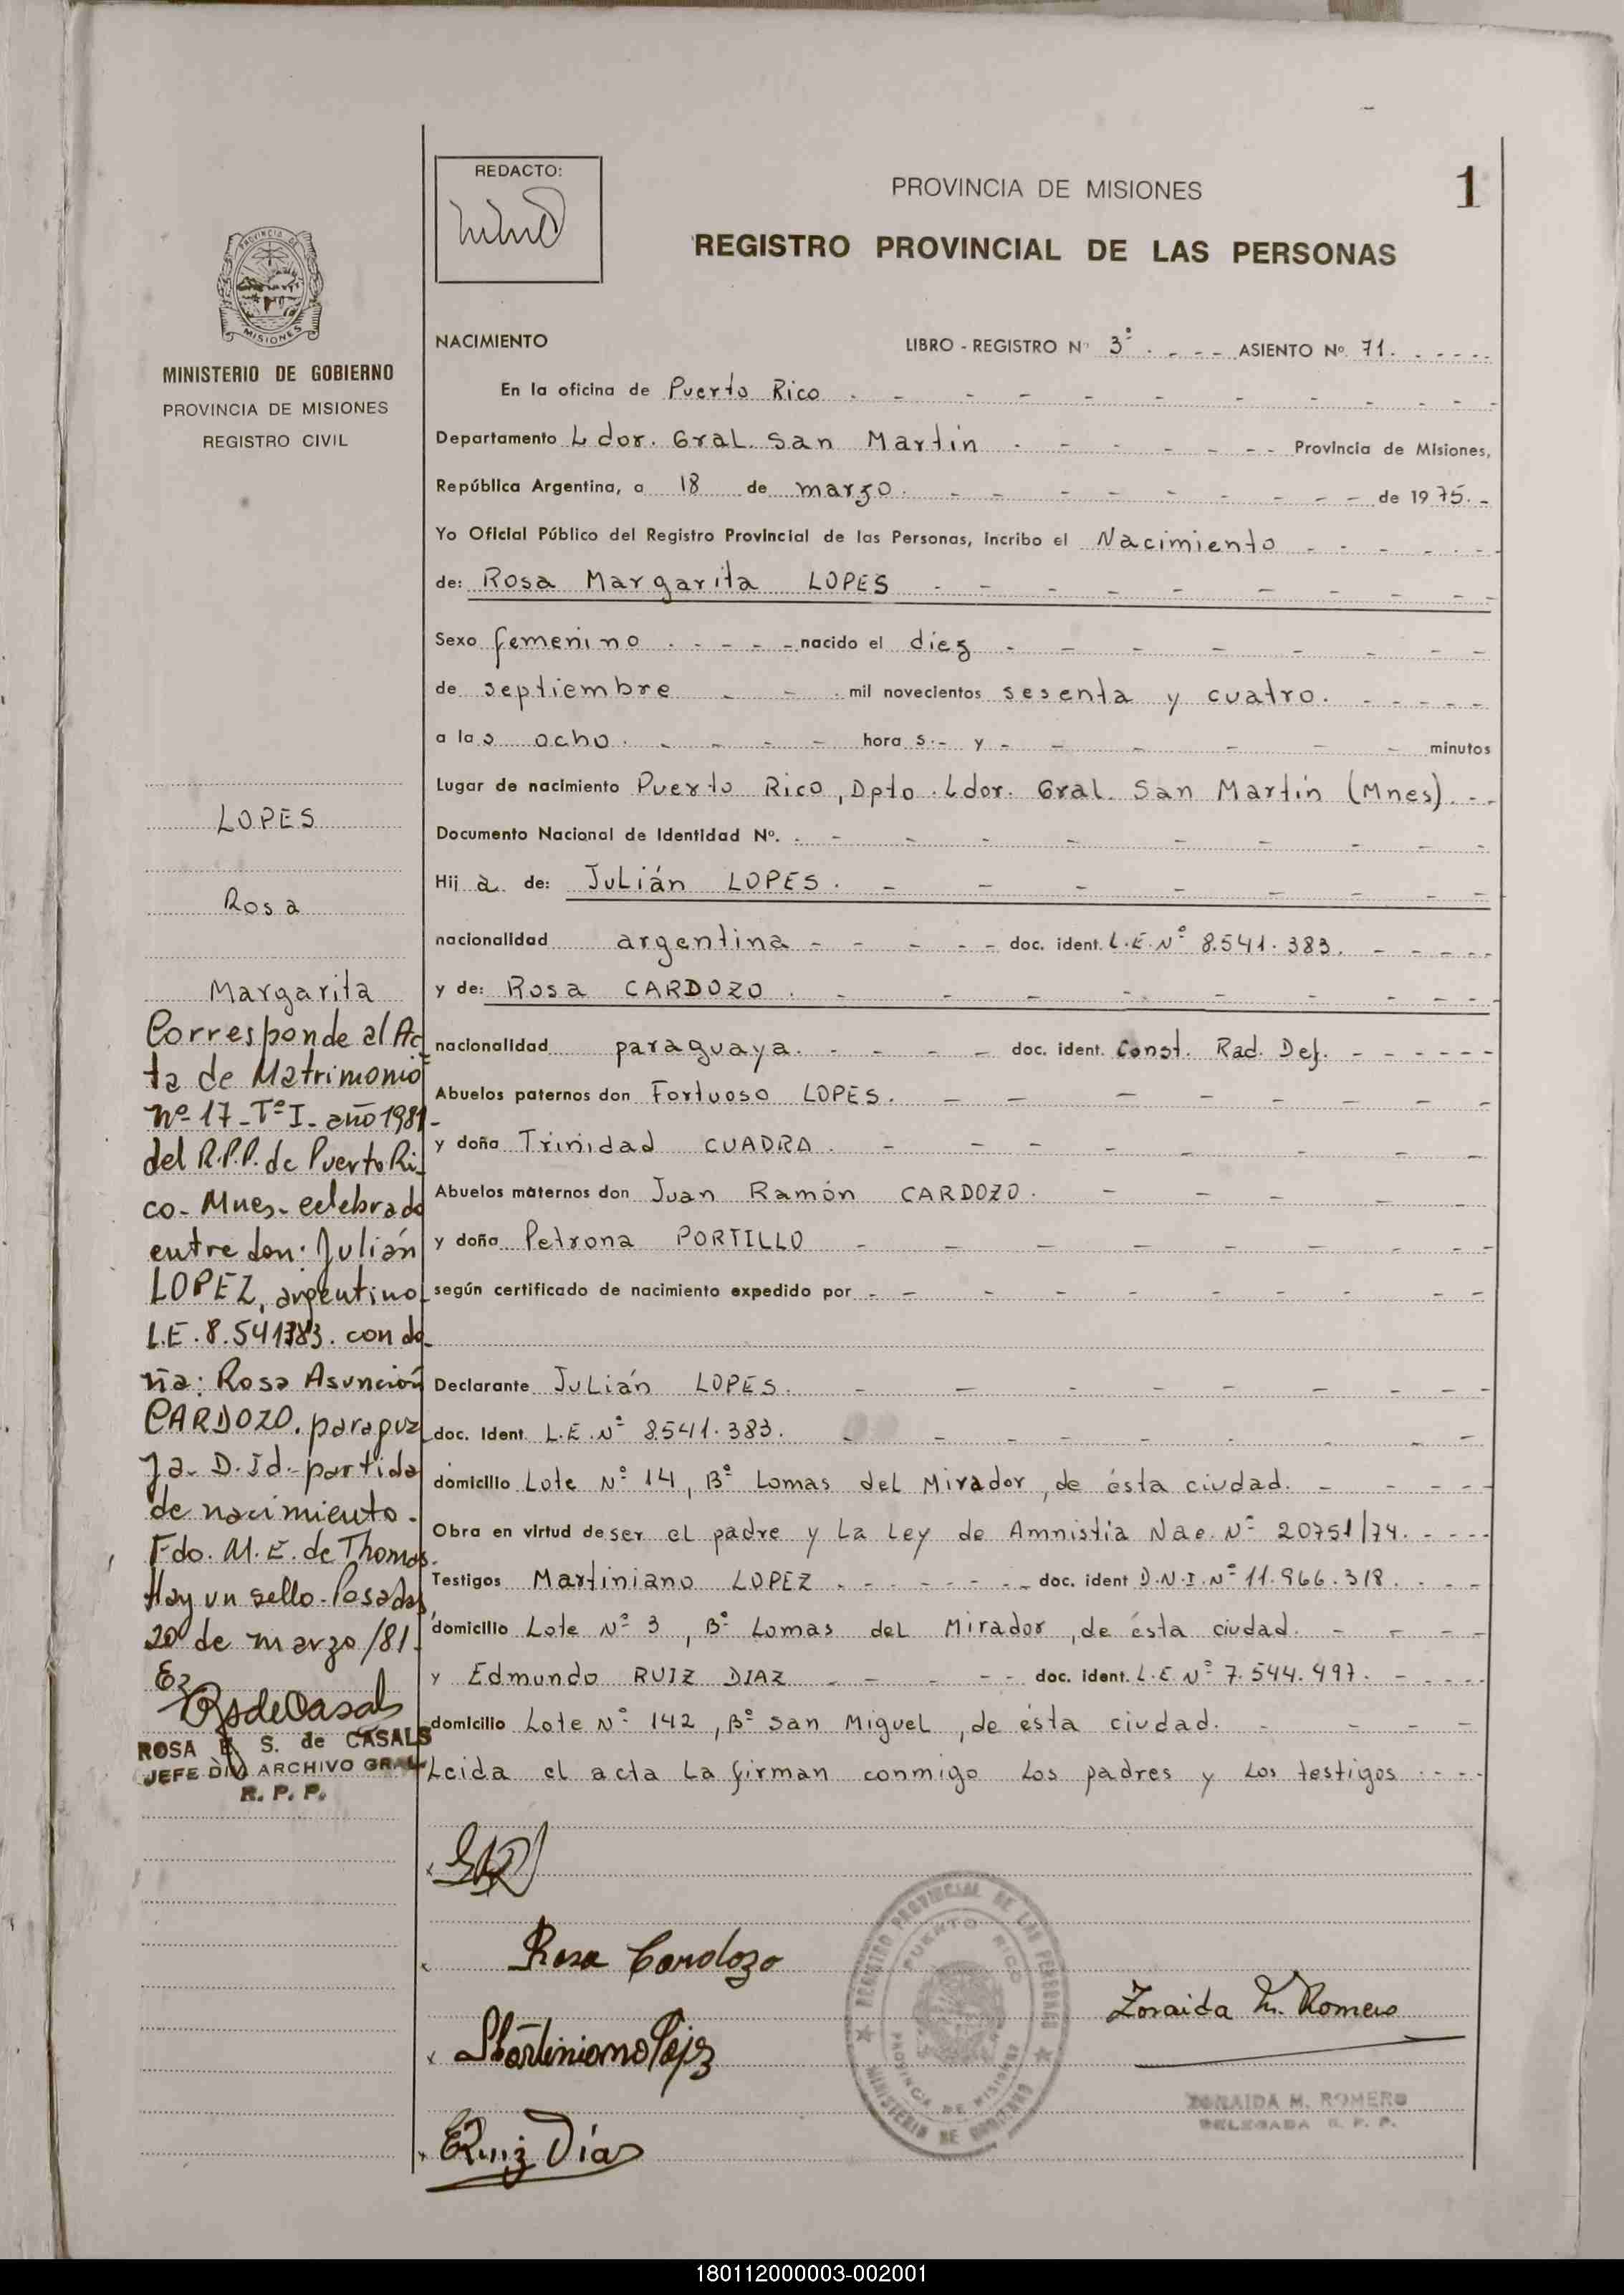 REDACTO:
PROVINCIA DE MISIONES
1
REGISTRO PROVINCIAL DE LAS PERSONAS
MISIONES
MINISTERIO DE GOBIERNO
PROVINCIA DE MISIONES
REGISTRO CIVIL
LOPES
Rosa
Margarita
Corresponde al Ac
ta de Matrimonio
nº 17 - Tº I - año 1981-
del R.P.P. de Puerto Ri
co - Mnes - celebrado
entre don: Julián
LOPEZ, argentino
L.E. 8.541383. con do
ña: Rosa Asunción
CARDOZO, paragua
ya. D. Id. - partida
de nacimiento.
Fdo. M. E. de Thomas.
Hay un sello - Posadas,
20 de marzo /81.
ROSA E. S. de CASALS
JEFE DIV ARCHIVO GRAL
R. P. P.
NACIMIENTO LIBRO - REGISTRO Nº 3º. - - - ASIENTO Nº 71. - - - -
En la oficina de Puerto Rico. - - - - - - - - -
Departamento Ldor. Gral. San Martin - - - - - - Provincia de Misiones,
República Argentina, a 18 de marzo. - - - - - - - de 1975. -
Yo Oficial Público del Registro Provincial de las Personas, incribo el Nacimiento - - - - -
de: Rosa Margarita LOPES - - - - - - - -
Sexo femenino. - - - - nacido el diez - - - - - - - -
de septiembre - - . mil novecientos sesenta y cuatro. - - - - -
a las ocho. - - - - hora s.- y - - - - - - minutos
Lugar de nacimiento Puerto Rico, Dpto. Ldor. Gral. San Martin (Mnes). - -
Documento Nacional de Identidad Nº. . - - - - - - - -
Hij a de: Julián LOPES. - - - - - - - -
nacionalidad argentina - - - - - doc. ident. L.E. Nº 8.541.383. - - - - -
y de: Rosa CARDOZO. - - - - - - - -
nacionalidad paraguaya. - - - - - doc. ident. Const. Rad. Def. - - - - - -
Abuelos paternos don Fortuoso LOPES. - - - - - - - -
y doña Trinidad CUADRA. - - - - - - - -
Abuelos maternos don Juan Ramón CARDOZO. - - - - -
y doña Petrona PORTILLO - - - - - - - -
según certificado de nacimiento expedido por - - - - - - - - -
Declarante Julián LOPES. - - - - - - - - -
doc. Ident. L.E. Nº 8.541.383. - - - - - - - -
domicilio Lote Nº 14, Bº Lomas del Mirador, de ésta ciudad. - - - - -
Obra en virtud de ser el padre y la Ley de Amnistia Nae. Nº 20751/74. - - - -
Testigos Martiniano LOPEZ. - - - - - - - doc. ident D.N.I. Nº 11.966.318. - - -
domicilio Lote Nº 3, Bº Lomas del Mirador, de ésta ciudad. - - - -
y Edmundo RUIZ DIAZ - - - - - doc. ident. L.E. Nº 7.544.497. - - - - -
domicilio Lote Nº 142, Bº San Miguel, de ésta ciudad. - - - -
Leida el acta la firman conmigo los padres y los testigos. - - -
Rosa Cardozo
Martiniano Lopez
ERuiz Días
REGISTRO PROVINCIAL DE LAS PERSONAS
PUERTO RICO
PROVINCIA DE MISIONES
MINISTERIO DE GOBIERNO
Zoraida M. Romero
ZORAIDA M. ROMERO
DELEGADA R. P. P.
180112000003-002001